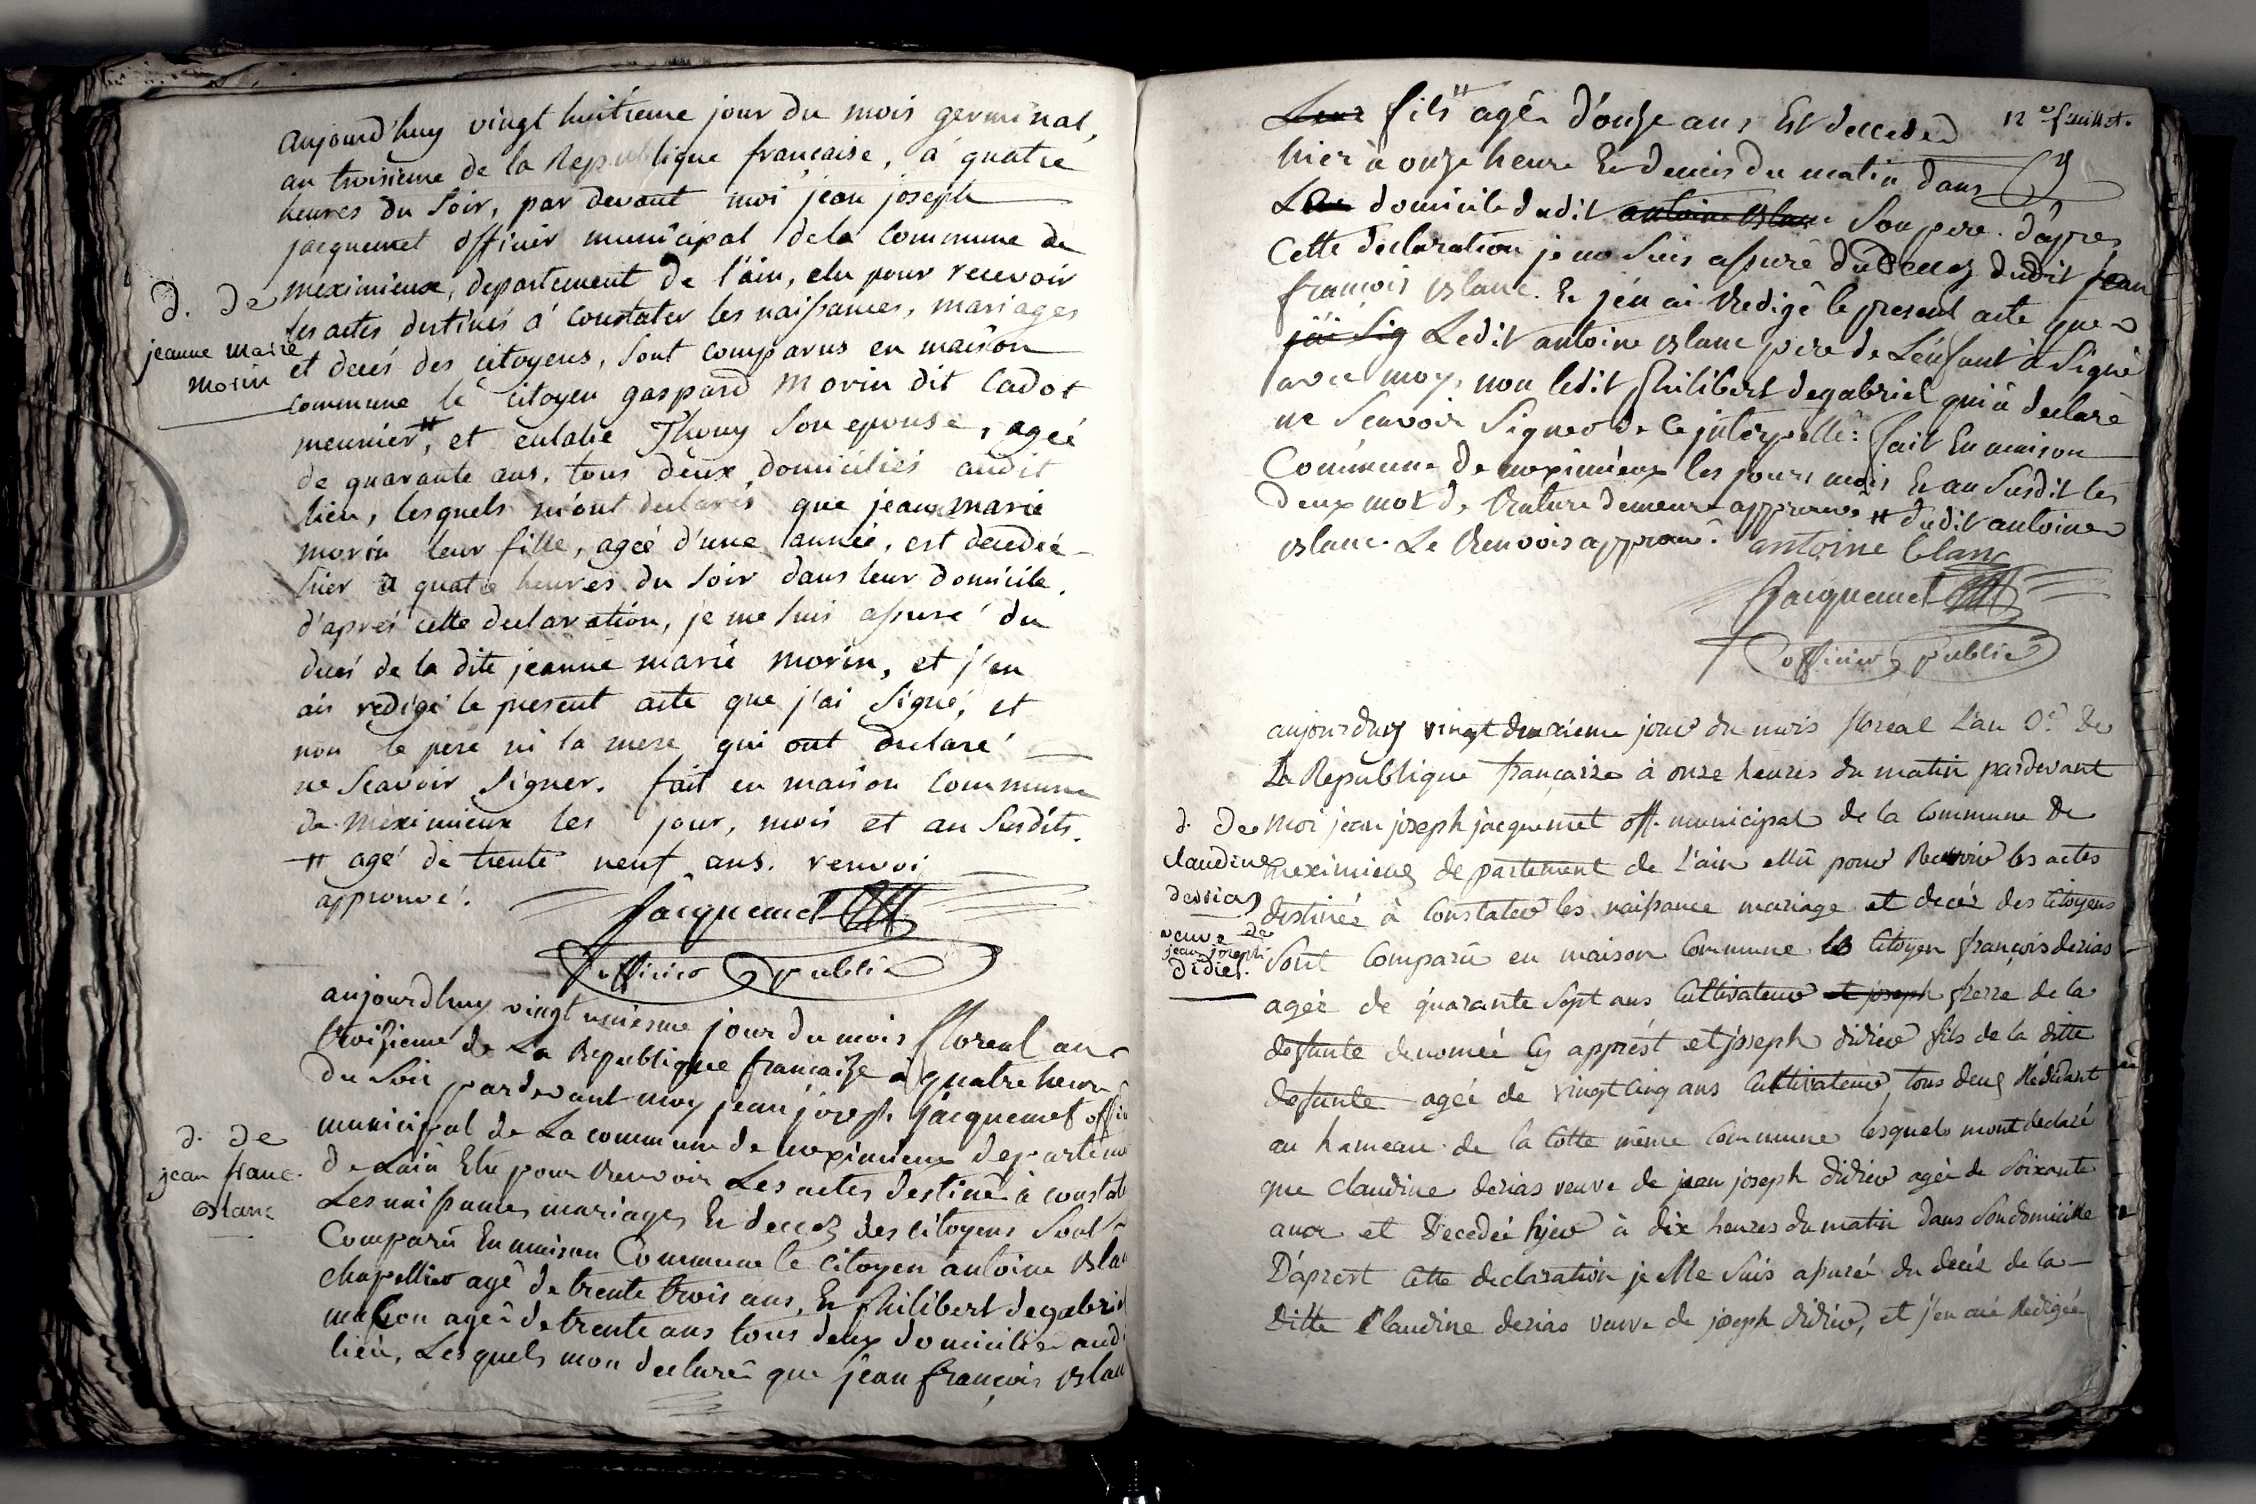 aujourd'huy vingt huitieme jour du mois germinal,
an troisieme de la Republique francaise, a quatre
heures du soir, par devant moi jean joseph
jacquemet officier municipal dela commune de
meximieux, departement de l'ain, elu pour recevoir
les actes destinés a constater les naissances, mariages
et decés des citoyens, sont comparus en maison
commune le citoyen gaspard morin dit Cadot
meunier #, et eulalie Thouy son epouse, ageé
de quarante ans, tous deux domiciliés audit
lieu, lesquels m'ont declarés que jeanne marie
morin leur fille, ageé d'une année, est decedeé
hier a quatre heures du soir dans leur domicile.
d'aprés cette declaration, je me suis assuré du
decés de la dite jeanne marie morin, et j'en
ais redigé le present acte que j'ai signé, et
non le pere ni la mere qui ont declaré
ne scavoir signer. fait en maison commune
de meximieux les jour, mois et an susdits.
# agé de trente neuf ans. renvoi
approuvé.
jacquemet
officier public
d. de
jeanne marie
morin
aujourdhuy vingt unieme jour du mois floreal an
troisieme de La Republique francaise a quatre heure
du soir pardevant moy jean joseph jacquemet offi
municipal de La commune de meximieux departeme
de Lain Elu pour Recevoir Les actes destiné a constat
Les naissances mariages Et decez des citoyens sont
Comparu En maison Commune le citoyen antoine Bla
chapellier agé de trente trois ans, Et philibert degabri
masson agé de trente ans tous deux domicilié aud
lieu, Lesquels mon declaré que jean françois Blan
d. de
jean franc.
Blanc
12e feuillet.
Leur fils # agé d'onze ans Est deccedé
hier a onze heure Et demis du matin dans
Leur domicile dudit antoine Blanc son pere. d'apres
Cette declaration je me suis assuré du decez dudit jean
françois Blanc. Et j'en ai Redigé le present acte que
j'ai sig Ledit antoine Blanc pere de L'enfant a signé
avec moy, non ledit philibert degabriel qui a declaré
ne scavoir signer de ce interpellé: fait En maison
Commune de meximieux les jours mois Et an susdit les
deux mot de Rature demeure approuvé # dudit antoine
Blanc. Le Renvois approuvé. antoine blanc
jacquemet
officier public
aujourdhuy vingt deuxieme jour du mois floreal L'an 3e. de
La Republique française à onze heures du matin pardevant
moi jean joseph jacquemet off. municipal de la commune de
meximieux departement de l'ain ellu pour Recevoir les actes
destineé à constater les naissance mariage et decés des Citoyens
sont comparu en maison commune le Citoyen françois derias
ageé de quarante sept ans Cultivateur et joseph frerre de la
defunte denomeé Cy apprést et joseph didier fils de la ditte
defunte ageé de vingt Cinq ans Cultivateur, tous deux Résidant
au hameau de la Cotte même commune lesquels mont declaré
que claudine derias veuve de jean joseph didier ageé de soixante
ans et decedeé hier à dix heures du matin dans son domicille
D'áprest Cette declaration je Me suis assuré du decés de la
ditte Claudine derias veuve de joseph didier, et j'en aié Redigeé
d. de
claudine
derrias
veuve de
jean joseph
didier.